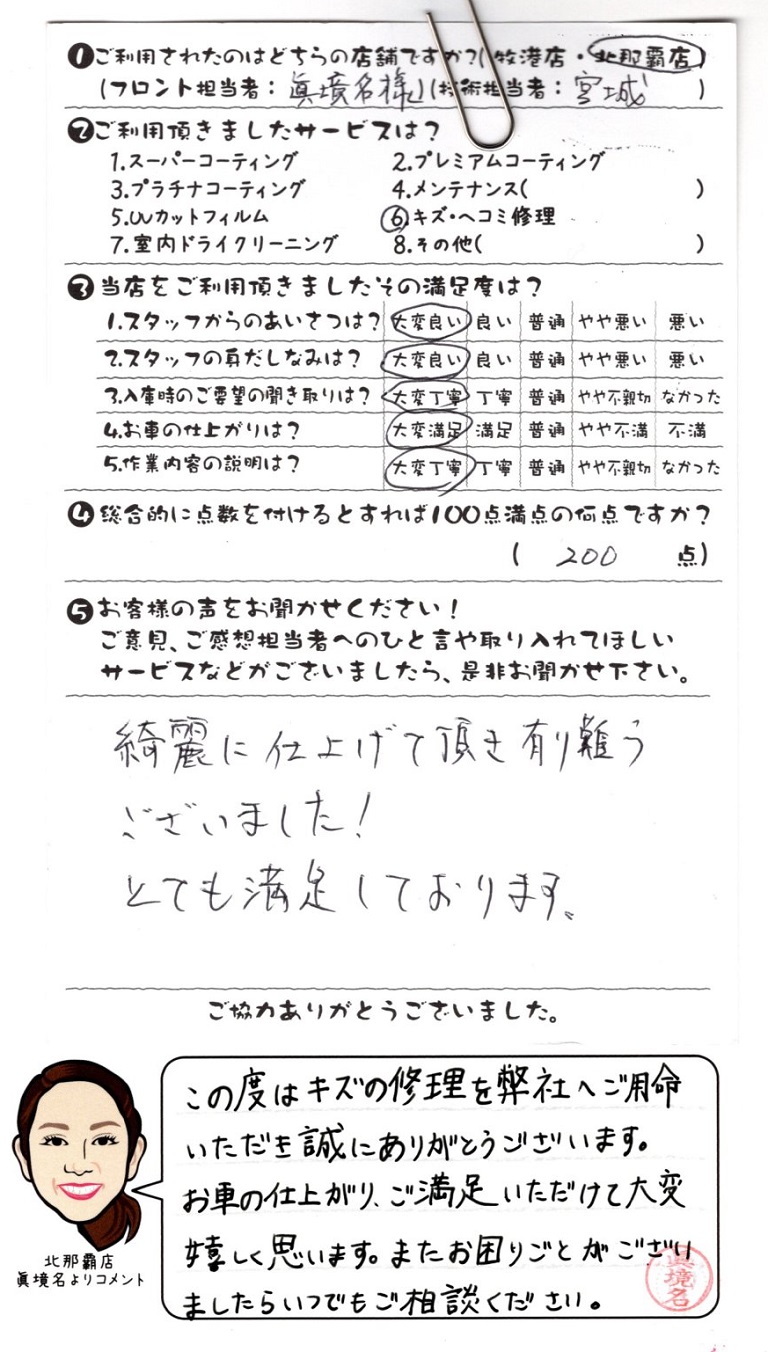 ❶ご利用されたのはどちらの店舗ですか?(牧港店・北那覇店)
(フロント担当者：眞境名様)(技術担当者：宮城 )
❷ご利用頂きましたサービスは？
1.スーパーコーティング 2.プレミアムコーティング
3.プラチナコーティング 4.メンテナンス( )
5.UVカットフィルム 6.キズ・ヘコミ修理
7.室内ドライクリーニング 8.その他( )
❸当店をご利用頂きましたその満足度は？
1.スタッフからのあいさつは？ 大変良い 良い 普通 やや悪い 悪い
2.スタッフの身だしなみは？ 大変良い 良い 普通 やや悪い 悪い
3.入庫時のご要望の聞き取りは？ 大変丁寧 丁寧 普通 やや不親切 なかった
4.お車の仕上がりは？ 大変満足 満足 普通 やや不満 不満
5.作業内容の説明は？ 大変丁寧 丁寧 普通 やや不親切 なかった
❹総合的に点数を付けるとすれば100点満点の何点ですか？
( 200 点)
❺お客様の声をお聞かせください！
ご意見、ご感想担当者へのひと言や取り入れてほしい
サービスなどがございましたら、是非お聞かせ下さい。
綺麗に仕上げて頂き有り難う
ございました！
とても満足しております。
ご協力ありがとうございました。
この度はキズの修理を弊社へご用命
いただき誠にありがとうございます。
お車の仕上がり、ご満足いただけて大変
嬉しく思います。またお困りごとがござい
ましたらいつでもご相談ください。
眞境名
北那覇店
眞境名よりコメント